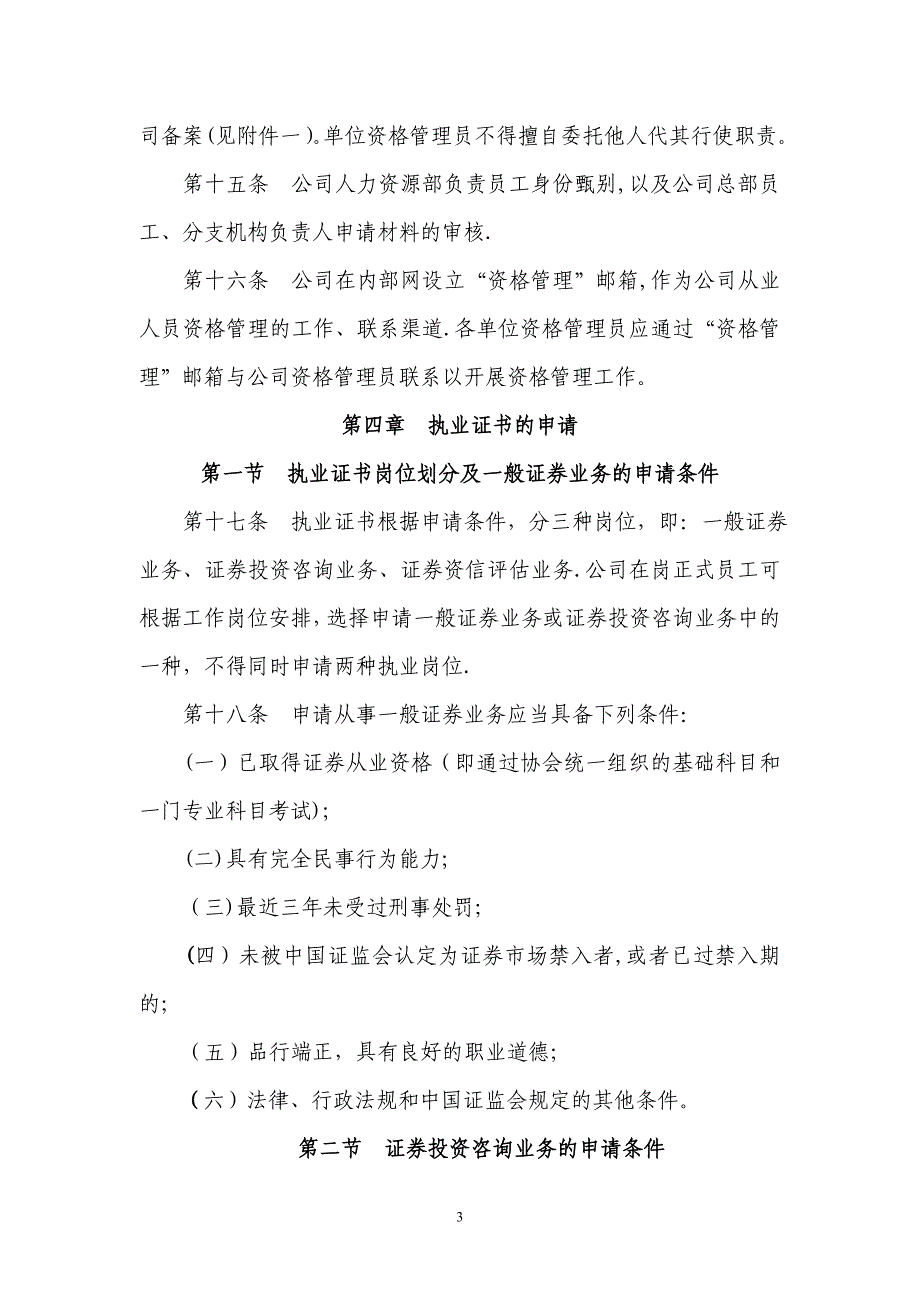 司备案(见附件一)。单位资格管理员不得擅自委托他人代其行使职责。
第十五条　公司人力资源部负责员工身份甄别,以及公司总部员
工、分支机构负责人申请材料的审核.
第十六条　公司在内部网设立“资格管理”邮箱,作为公司从业
人员资格管理的工作、联系渠道.各单位资格管理员应通过“资格管
理”邮箱与公司资格管理员联系以开展资格管理工作。
第四章　执业证书的申请
第一节　执业证书岗位划分及一般证券业务的申请条件
第十七条　执业证书根据申请条件，分三种岗位，即：一般证券
业务、证券投资咨询业务、证券资信评估业务.公司在岗正式员工可
根据工作岗位安排，选择申请一般证券业务或证券投资咨询业务中的
一种，不得同时申请两种执业岗位.
第十八条　申请从事一般证券业务应当具备下列条件:
(一）已取得证券从业资格（即通过协会统一组织的基础科目和
一门专业科目考试)；
(二)具有完全民事行为能力;
（三)最近三年未受过刑事处罚;
(四）未被中国证监会认定为证券市场禁入者,或者已过禁入期
的;
（五）品行端正，具有良好的职业道德;
（六）法律、行政法规和中国证监会规定的其他条件。
第二节　证券投资咨询业务的申请条件
3